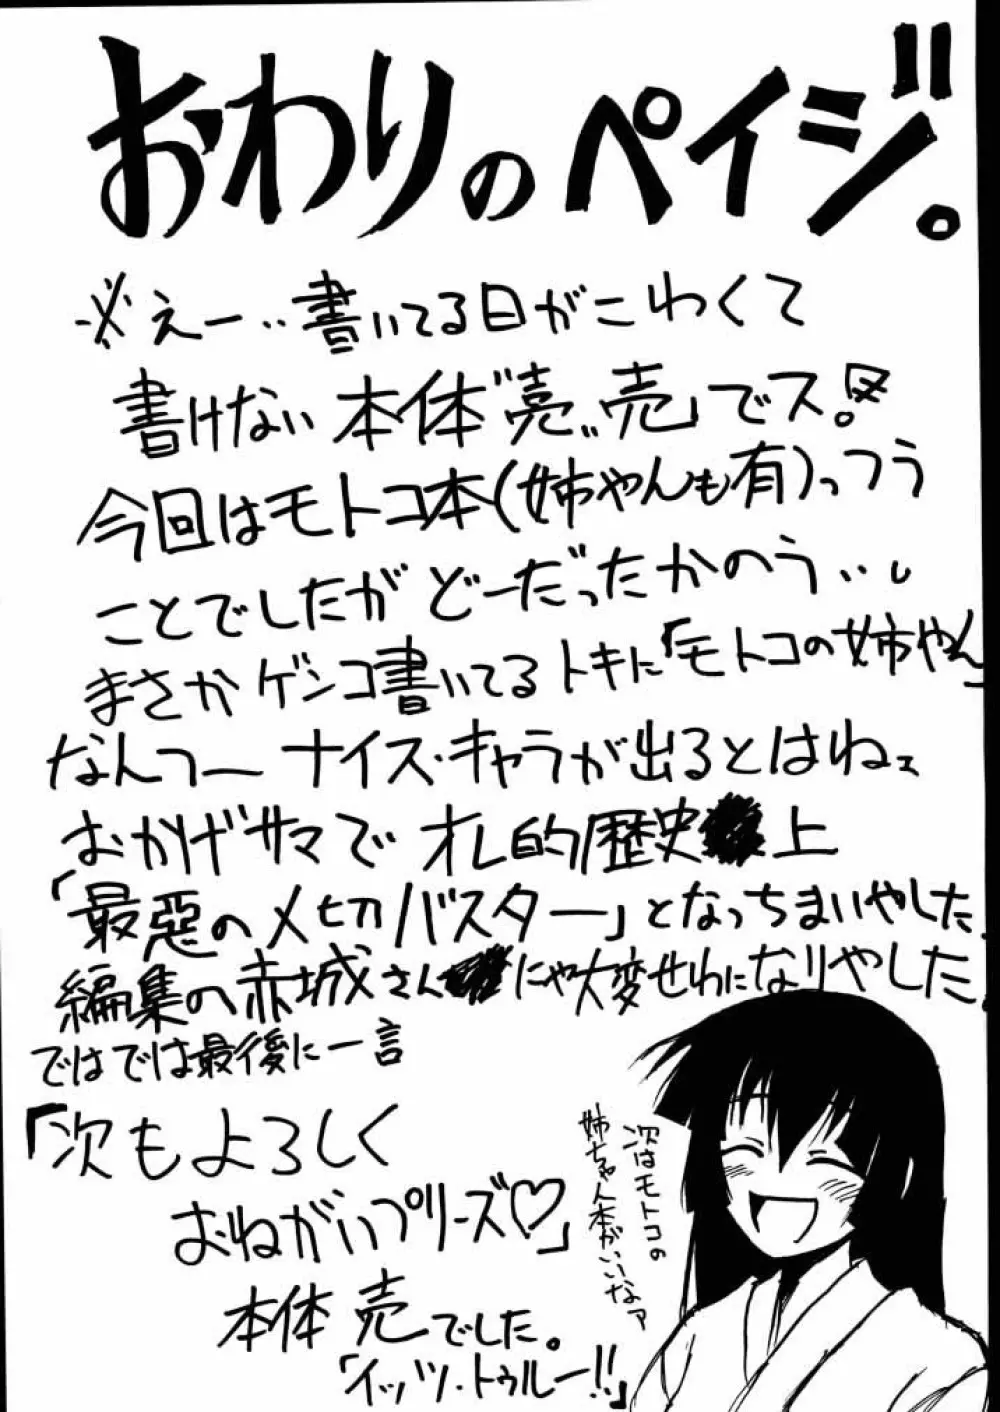 おわりのペイジ。
※えー‥書いてる日がこわくて
書けない本体〝売〟売」でス。
今回はモトコ本(姉やんも有)っつう
ことでしたがどーだったかのう‥。
まさかゲンコ書いてるトキに「モトコの姉やん」
なんつーナイス・キャラが出るとはねェ
おかげサマでオレ的歴史上
「最悪の〆切バスター」となっちまいやした.
編集の赤城さんにゃ大変せわになりやした.
ではでは最後に一言
「次もよろしく
おねがいプリーズ♡」
本体 売でした。
「イッツ・トゥルー!!」
次はモトコの
姉ちゃん本がいいなァ